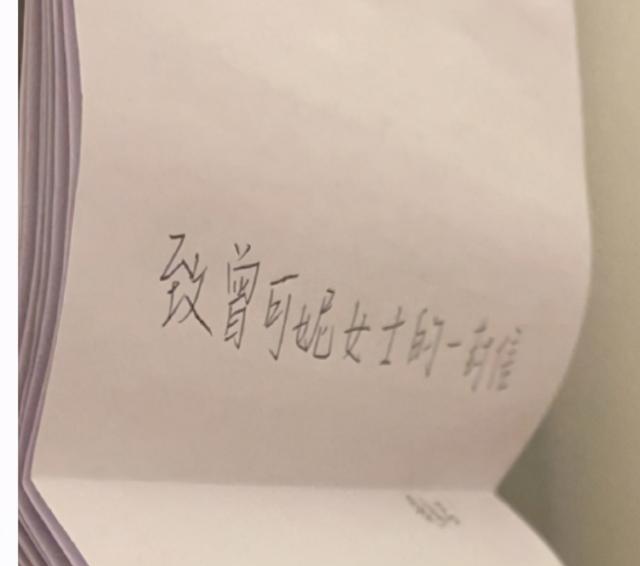 致曾可妮女士的一封信